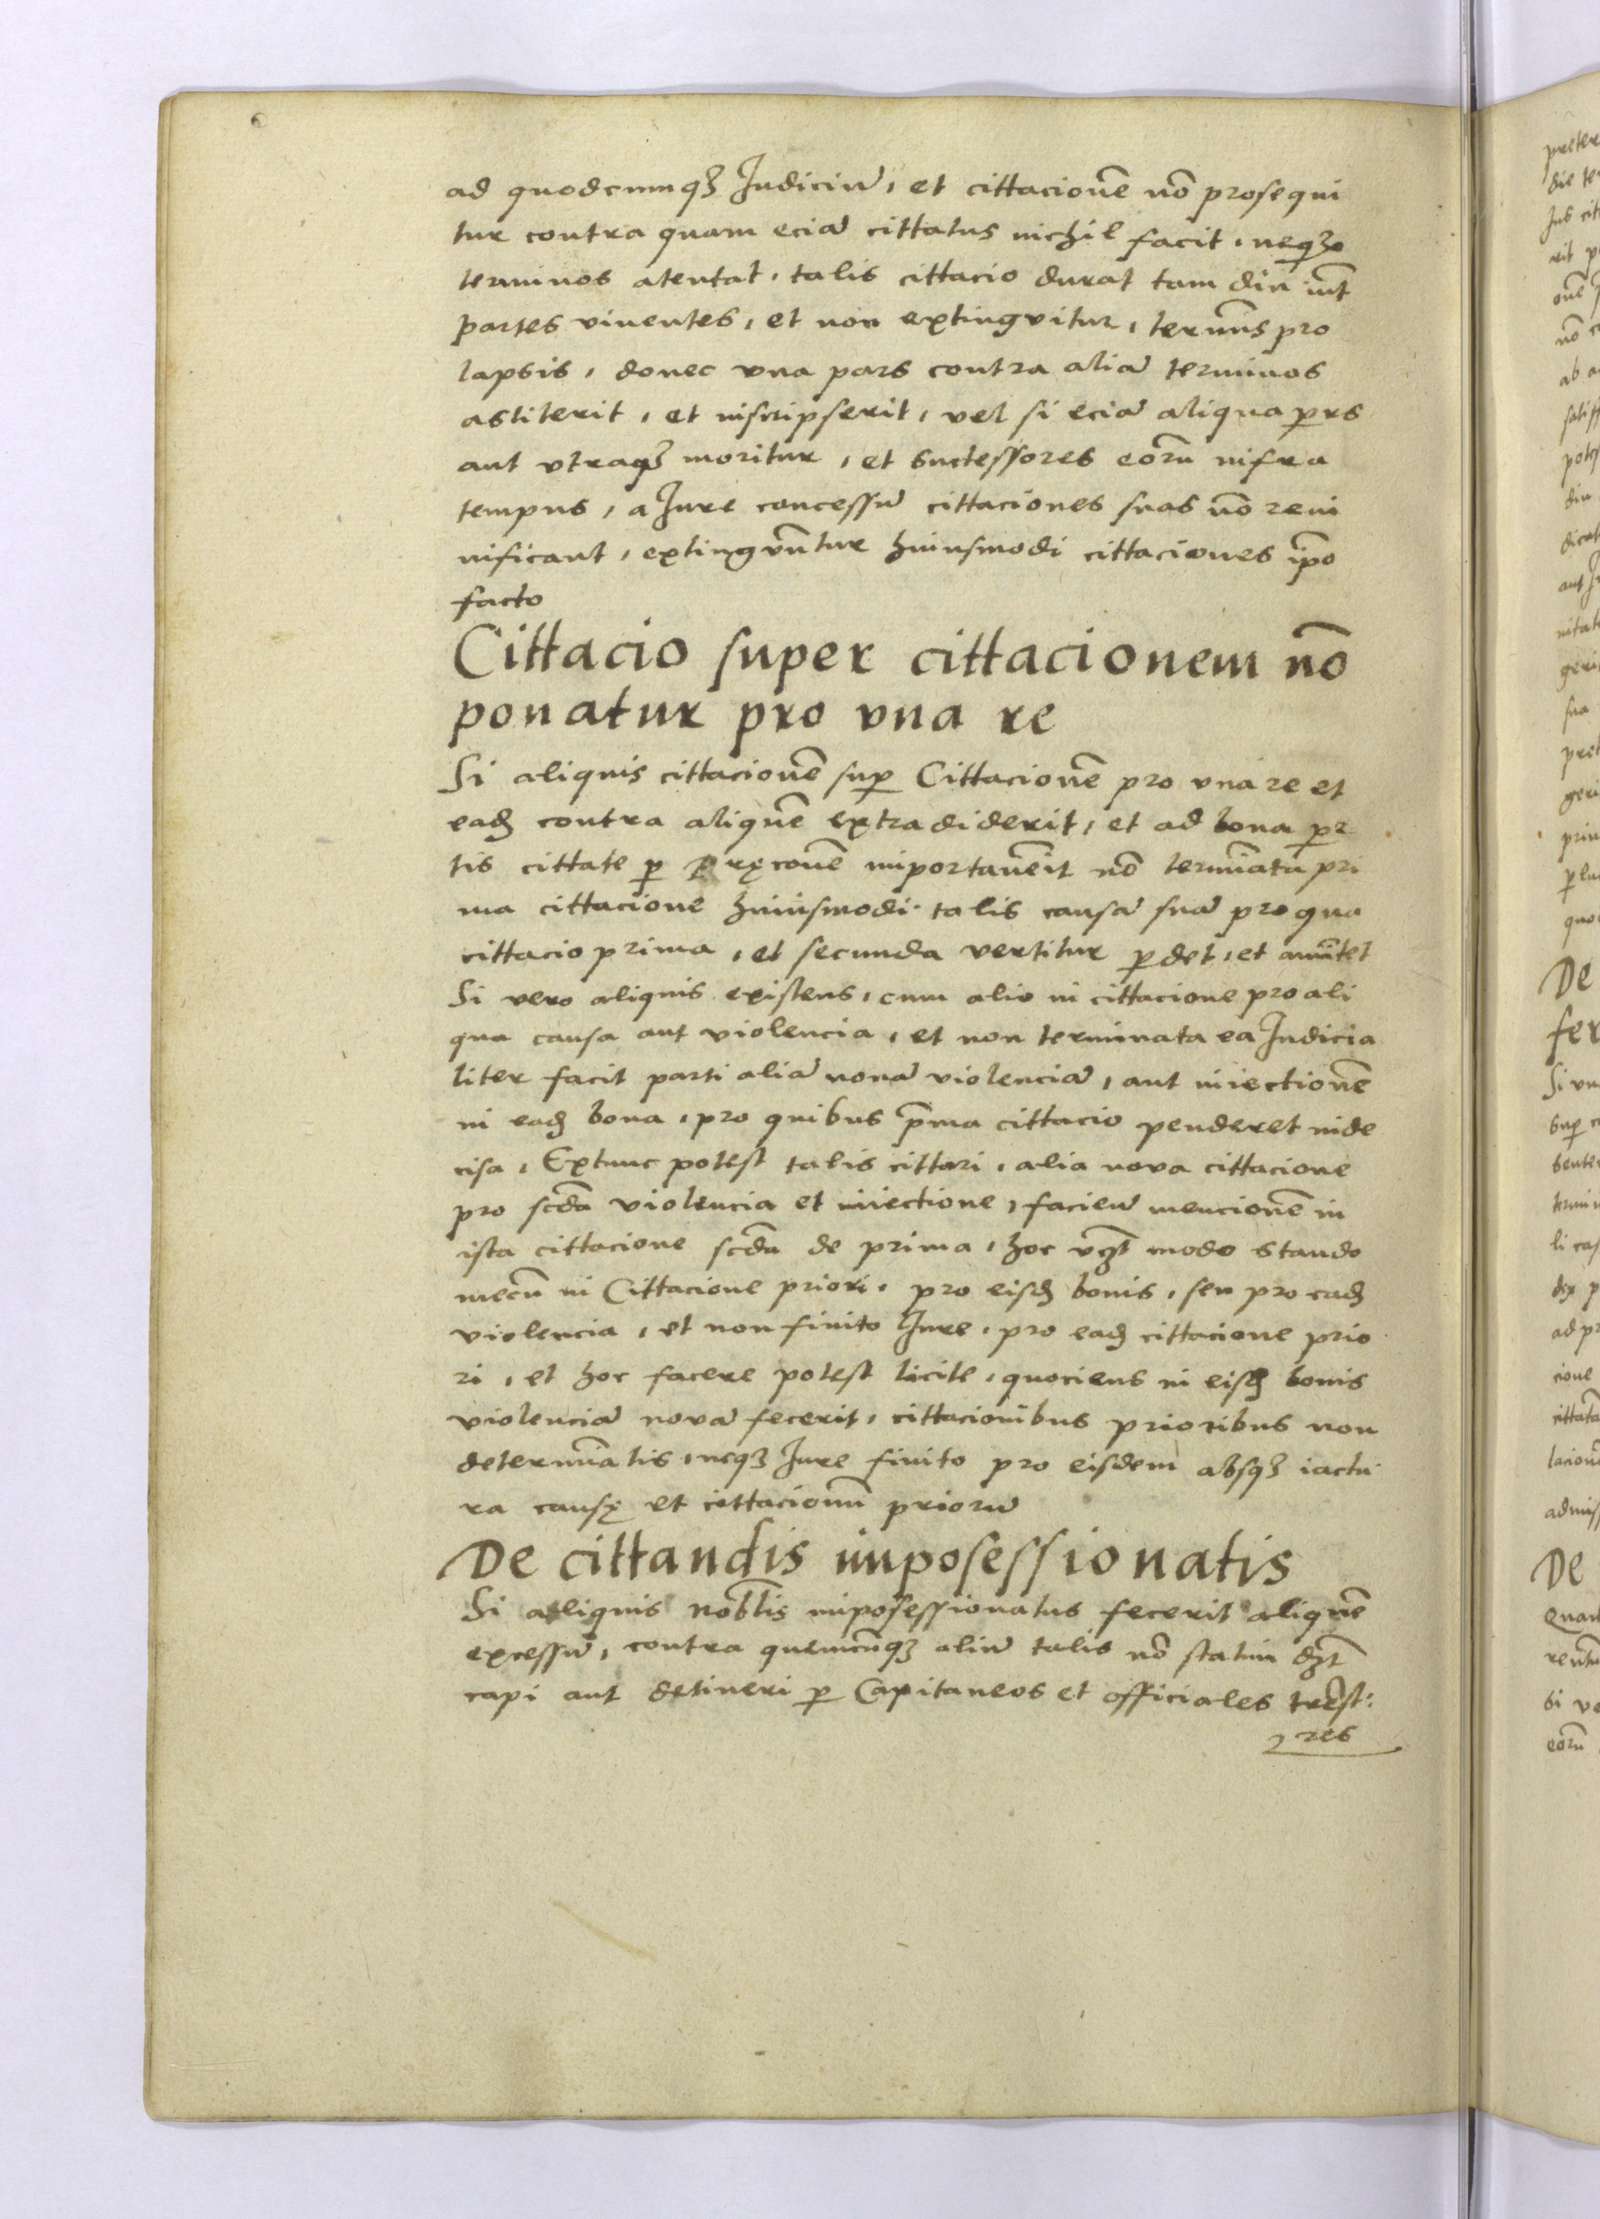 ad quodcumqȝ Iudiciū, et cittacionē nō prosequi
tur contra quam eciā cittatus nichil facit, neqȝ
terminos atentat, talis cittacio durat tam diu int̄
partes viuentes, et non extingvitur, termīs pro
lapsis, donec vna pars contra aliā terminos
astiterit, et inscripserit, vel si eciā aliqua pars
aut vtraqȝ moritur, et successores eorū infra
tempus, a Iure concessū cittaciones suas nō reui
uificant, extingvūntur huiusmodi cittaciones ip̄o
facto
Cittacio super cittacionem nō
ponatur pro vna re
Si aliquis cittacionē suꝑ Cittacionē pro vna re et
eadȝ contra aliquē extradiderit, et ad bona ꝑ
tis cittate ꝑ Pręconē importauēit nō termīata pri
ma cittacione huiusmodi talis causā suā pro qua
cittacio prima, et secunda vertitur ꝑdet, et amītet
Si vero aliquis existens, cum alio in cittacione pro ali
qua causa aut violencia, et non terminata ea Iudicia
liter facit parti aliā nouā violenciā, aut iniectionē
in eadȝ bona, pro quibus p̄ma cittacio penderet inde
cisa, Extunc potest talis cittari, alia nova cittacione
pro scd̄a violencia et iniectione, faciēū mencionē in
ista cittacione scd̄a de prima, hoc vȝt modo stando
mecū in Cittacione priori, pro eisdȝ bonis, seu pro eadȝ
violencia, et non finito Iure, pro eadȝ cittacione prio
ri, et hoc facere potest licite, quociens in eisdȝ bonis
violenciā novā fecerit, cittacionibus prioribus non
determīatis, neqȝ Iure finito pro eisdem absqȝ iactu
ra causę et cittacionū priorū
De cittandis imposessionatis
Si aliquis nobīlis imposessionatus fecerit aliquē
excessū, contra quemcūqȝ aliū talis nō statim dȝt
capi aut detineri ꝑ Capitaneos et officiales trēst:
res